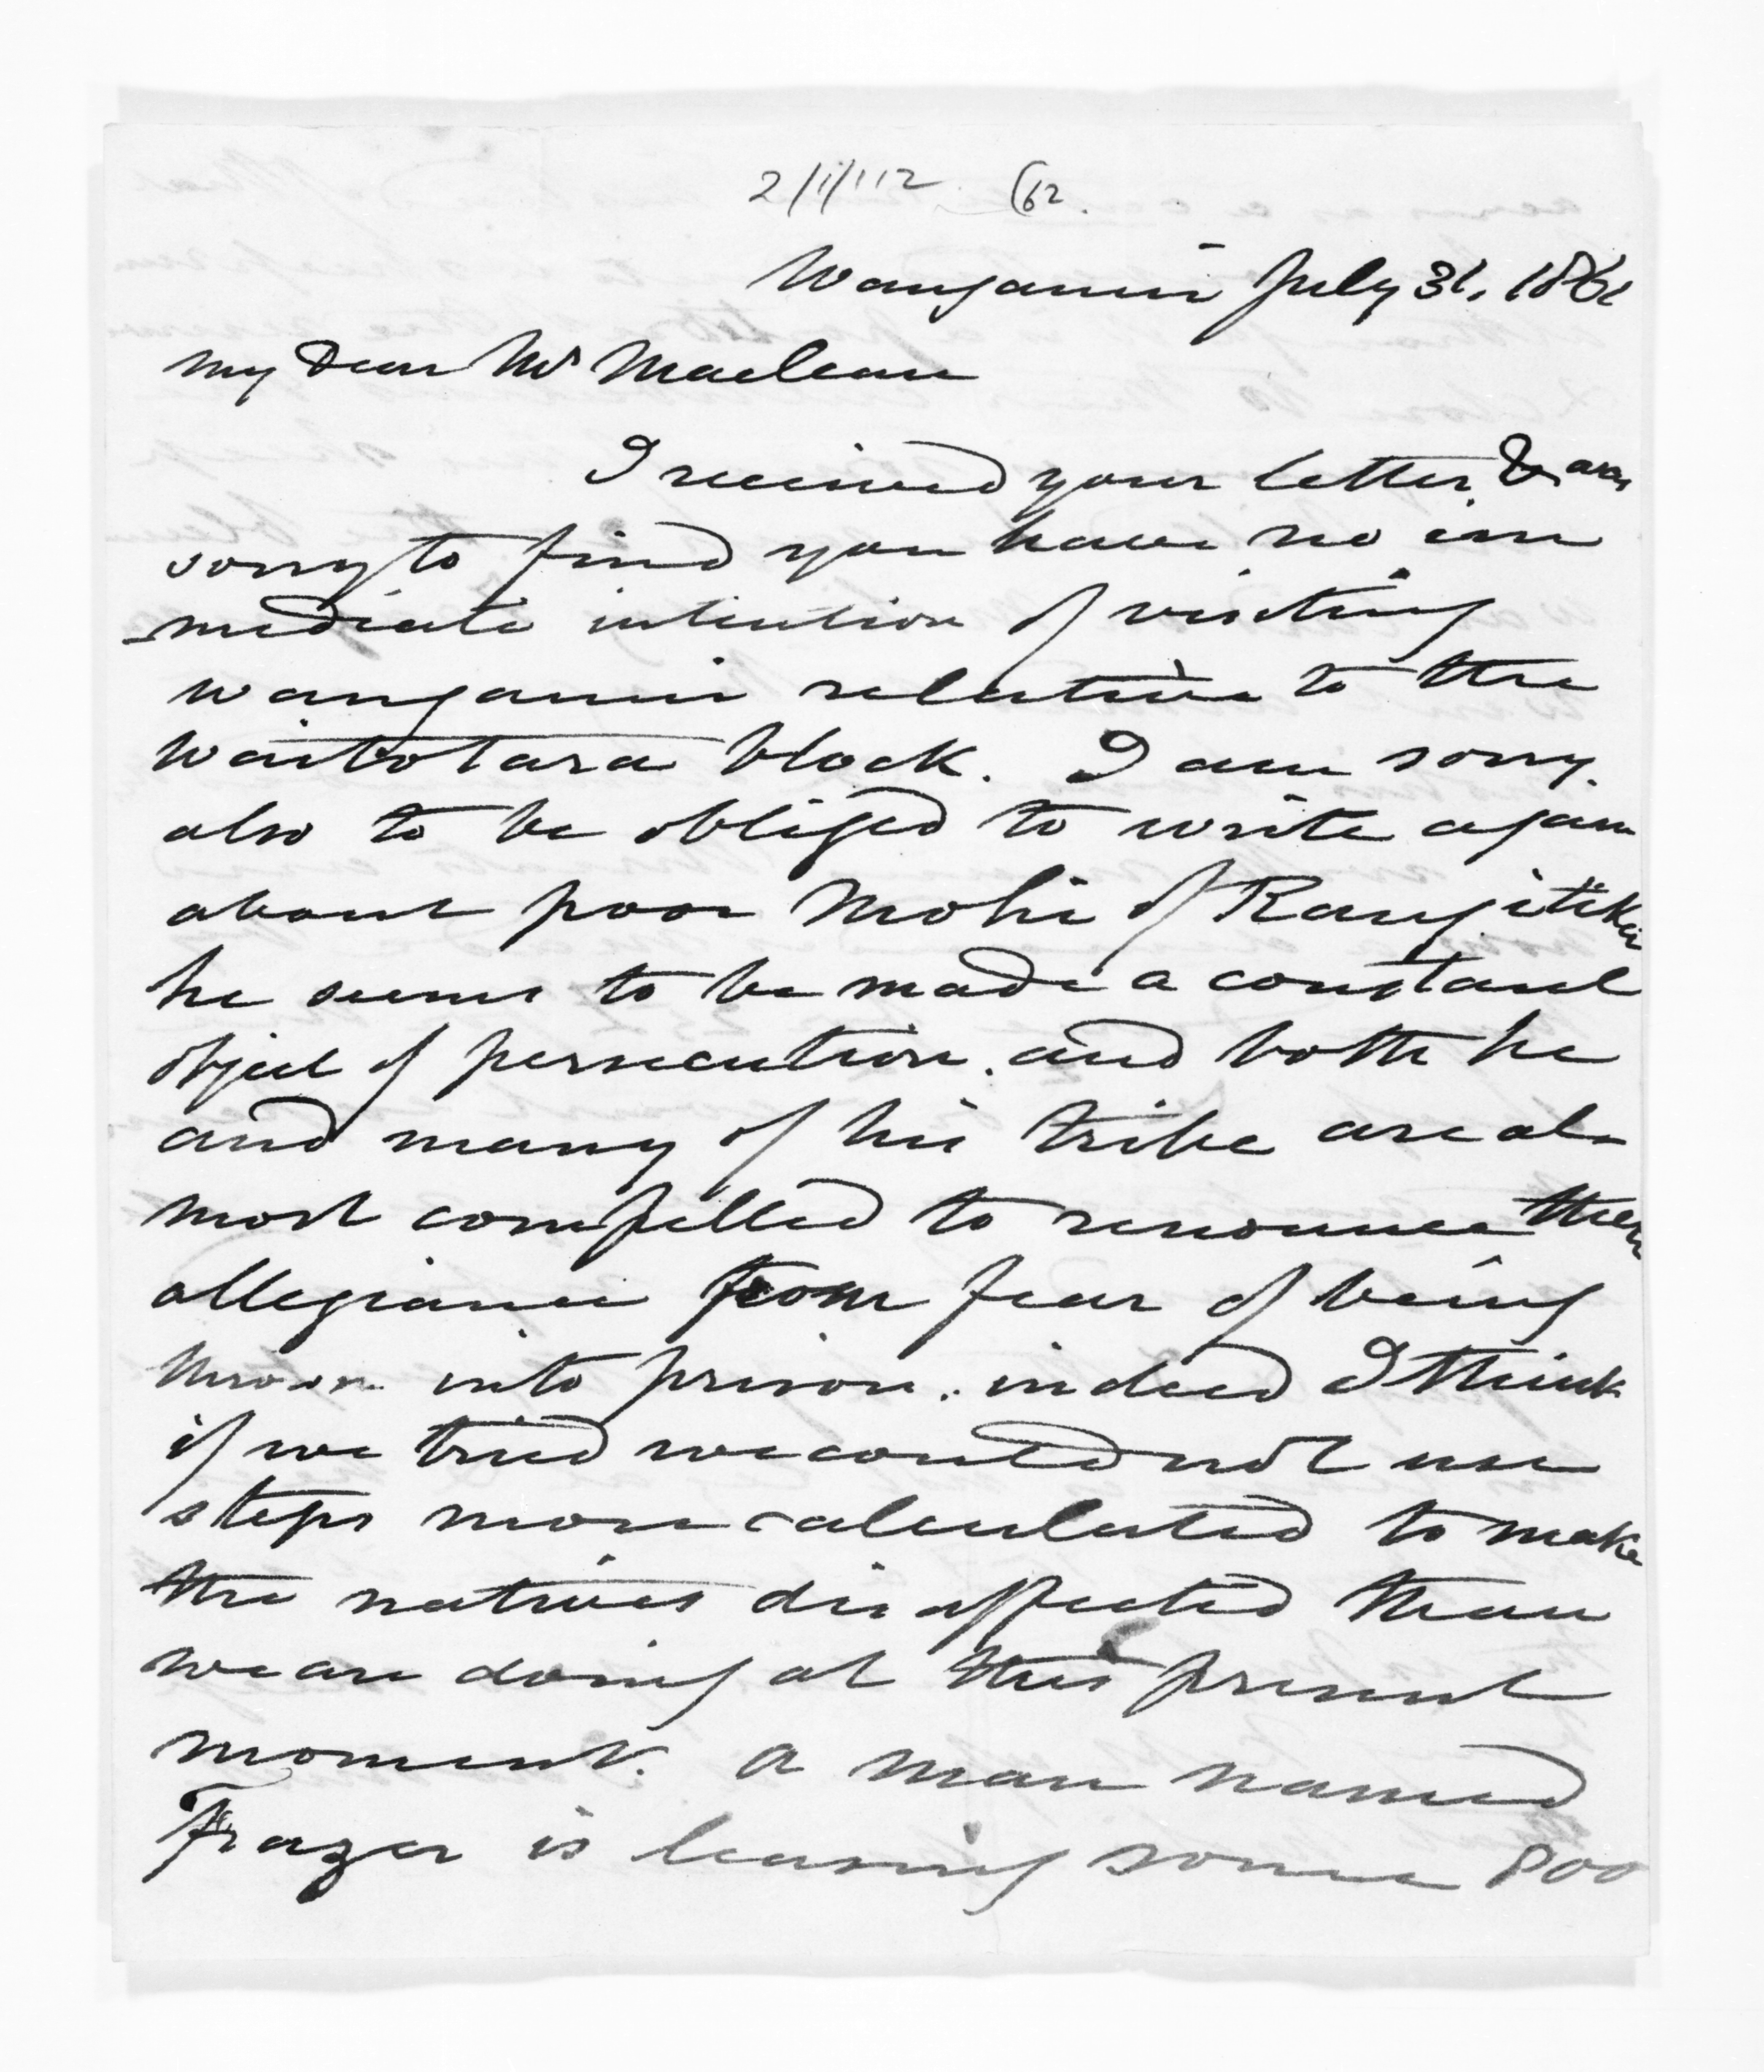 2/1/112 (62.
Wanganui July 31, 186
My Dear Mr Maclean
I received your letter & am
sorry to find you have no im
mediate intention of visiting
Wanganui relative to the
Waitotara block. I am sorry
also to be obliged to write again
about poor Mohi of Rangitikei
he seems to be made a constant
object of persecution. and both he
and many of his tribe are al-
most compelled to renounce their
allegiance from fear of being
thrown into prison. indeed I think
if we tried we could not use
steps more calculated to make
the natives disaffected than
we are doing at this present
moment. a man named
Frazer is leasing some 800